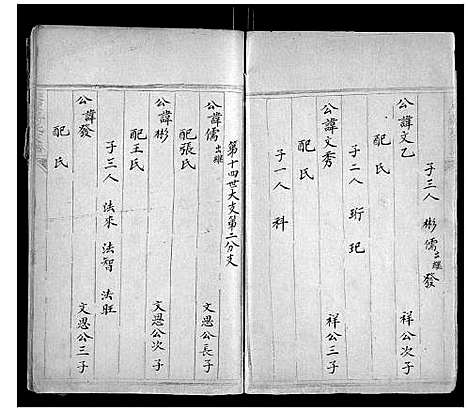 公諱文乙 祥公次子
配氏
子三人 彬 儒出繼 發
公諱文秀 祥公三子
配氏
子二人 珩 玘
子一人 科
第十四世大支第二分支
公諱儒出繼 文恩公長子
配張氏
公諱彬 文恩公次子
配王氏
子三人 法來 法智 法旺
公諱發 文恩公三子
配氏